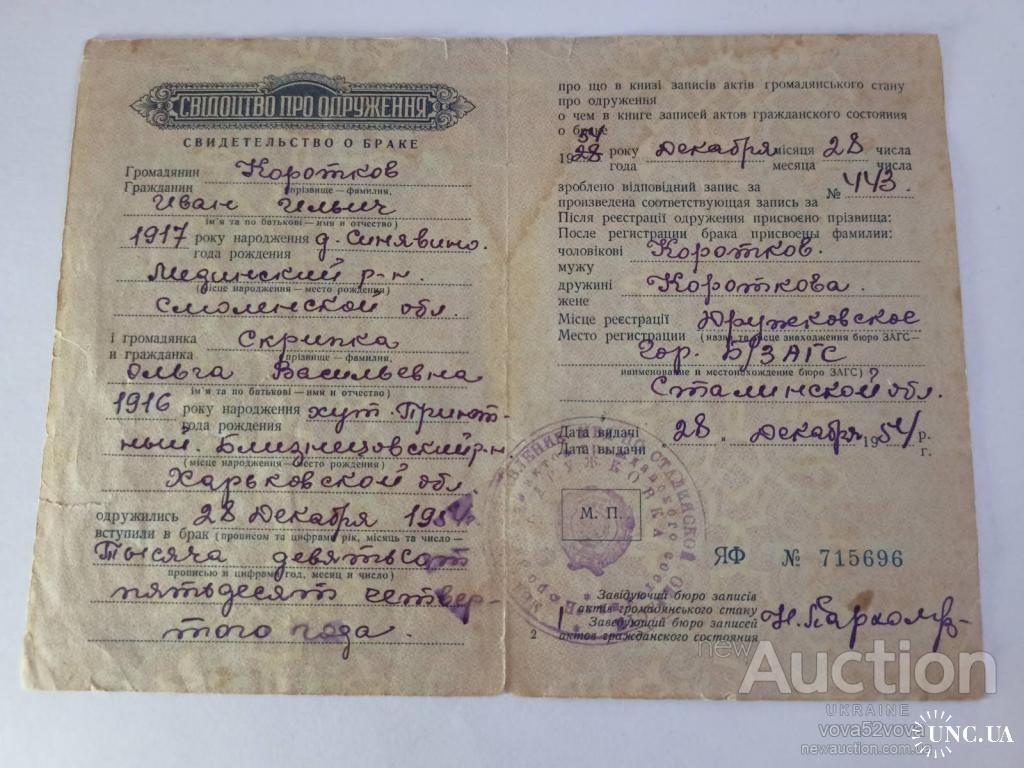 СВІДОЦТВО ПРО ОДРУЖЕННЯ
СВИДЕТЕЛЬСТВО О БРАКЕ
Громадянин Коротков
Гражданин прізвище — фамилия,
Иван Ильич
ім'я та по батькові — имя и отчество)
1917 року народження д. Синявино.
года рождения
Мединский р-н.
(місце народження — место рождения)
Смоленской обл.
і громадянка Скрипка
и гражданка (прізвище — фамилия,
Ольга Васильевна
ім'я та по батькові — имя и отчество)
1916 року народження хут. Приют-
года рождения
ный. Близнецовский р-н
(місце народження — место рождения)
Харьковской обл.
одружились 28 Декабря 1954
вступили в брак (прописом та цифрами рік, місяць та число —
Тысяча девятьсот
прописью и цифрами год, месяц и число)
пятьдесят четвер-
того года.
про що в книзі записів актів громадянського стану
про одруження
о чем в книге записей актов гражданского состояния
о браке
1954 року Декабря місяця 28 числа
года месяца числа
зроблено відповідний запис за № 443.
произведена соответствующая запись за
Після реєстрації одруження присвоєно прізвища:
После регистрации брака присвоены фамилии:
чоловікові Коротков.
мужу
дружині Короткова.
жене
Місце реєстрації Дружковское
Место регистрации (назва та місце знаходження бюро ЗАГС—
Гор. Б/ЗАГС
наименование и местонахождение бюро ЗАГС)
Сталинской обл.
Дата видачі „28„ Декабря 1954 р.
Дата выдачи г.
М. П.
ДРУЖКОВКА
ЯФ № 715696
Завідуючий бюро записів
актів громадянського стану
Заведующий бюро записей
актов гражданского состояния
2
newAuction
UKRAINE
vova52vova
newauction.com.ua
UNC.UA